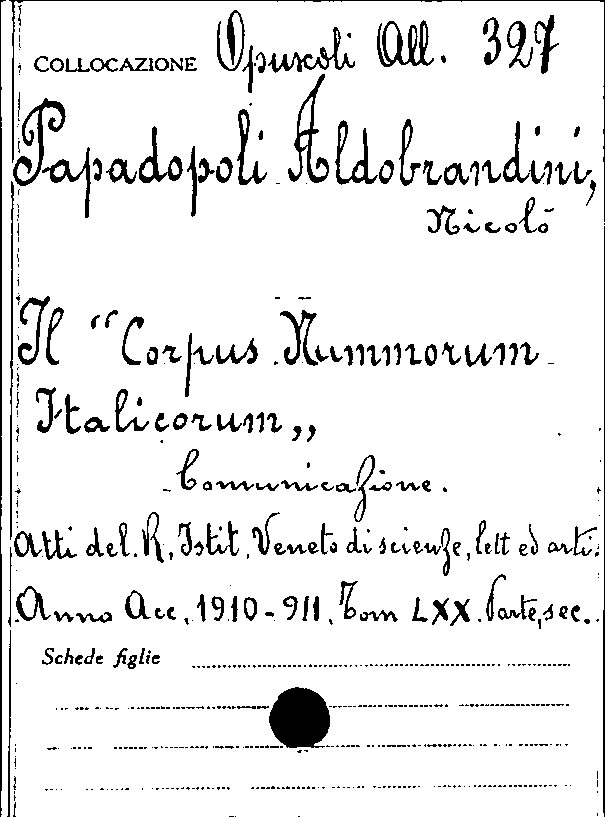 COLLOCAZIONE Opuscoli All. 327
Papadopoli Aldobrandini,
Nicolò
Il “Corpus Nummorum
Italicorum„
Comunicazione.
Atti del R. Istit. Veneto di scienze, lett ed arti.
Anno Acc. 1910-911. Tom LXX. Parte sec.
Schede figlie